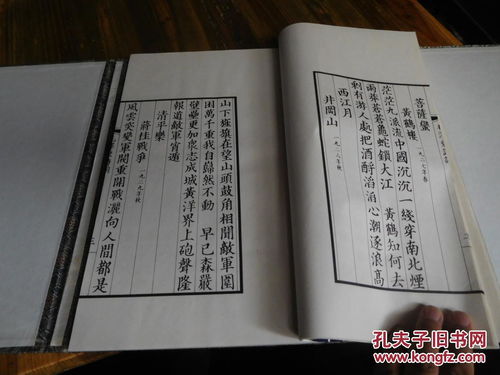 菩薩蠻
黃鶴樓 一九二七年春
茫茫九派流中國沉沉一綫穿南北煙
雨莽蒼蒼龜蛇鎖大江 黃鶴知何去
剩有游人處把酒酹滔滔心潮逐浪高
西江月
井岡山 一九二八年秋
山下旌旗在望山頭鼓角相聞敵軍圍
困萬千重我自巋然不動 早已森嚴
壁壘更加衆志成城黃洋界上砲聲隆
報道敵軍宵遁
清平樂
蔣桂戰爭 一九二九年秋
風雲突變軍閥重開戰灑向人間都是
孔夫子旧书网
www.kongfz.com